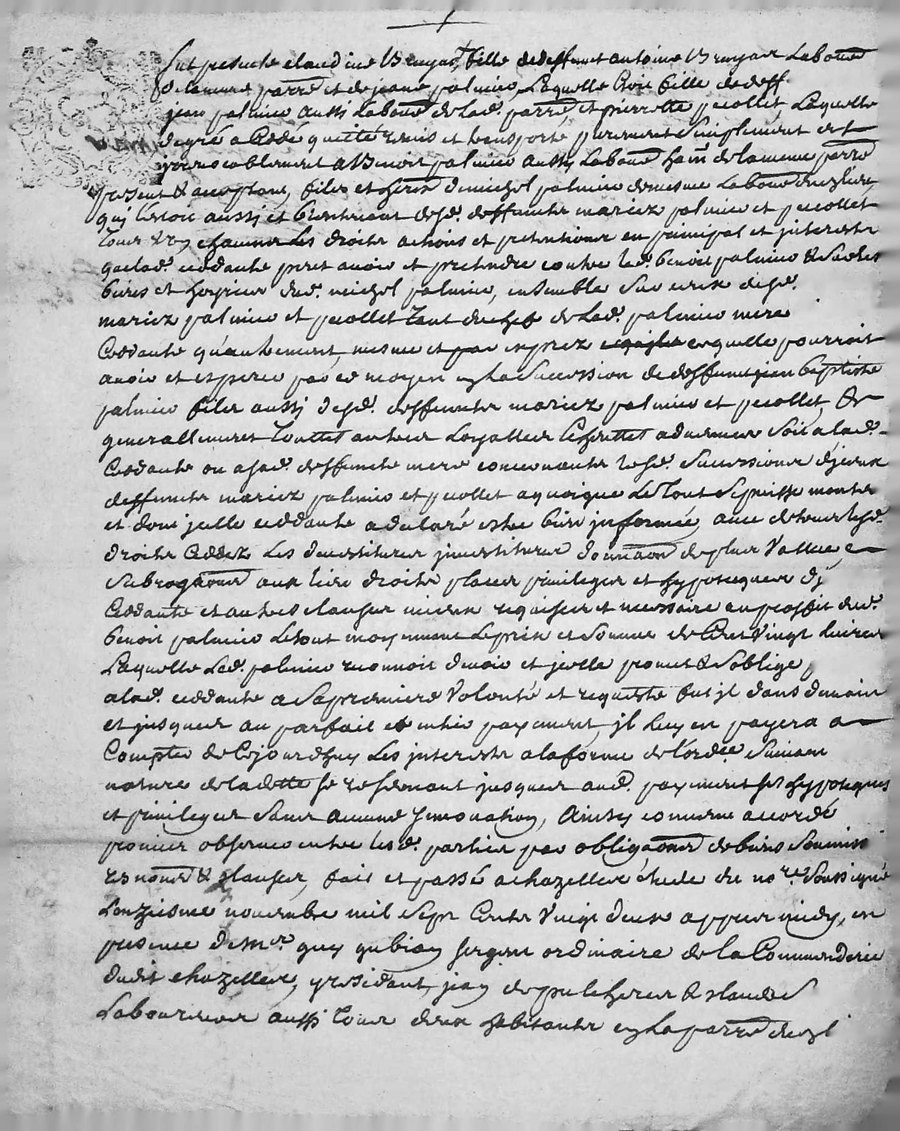 fut presente claudine Bruyas, fille de deffunct antoine Bruyas Laboure
de la mesme parre et de jeanne palmier, Laquelle etoit fille de deff
jean palmier aussi Laboure de lad. parre et pierrette pecollet Laquelle
de gré a Cedé quitte remis et transporte purement simplement et
irrevocablement a Benoit palmier aussy Laboure hant de la mesme parre
present & acceptant, filz et heritr de michel palmier de mesme Laboure
quj Lestoit aussj et desd. deffuncts mariez palmier et pecollet
tous & chacuns Les droits actions et pretentions en principal et jnterests
que lad. ceddante peut avoir et pretendre contre led. benoit palmier & sur les
biens et hoyrie dud. michel palmier, ensemble sur ceux desd.
mariez palmier et pecollet tant du chef de Lad. palmier mere
Ceddante qu'autrement, mesme et par exprez ce quelle pourroit
avoir et esperer par ce moyen en la succession de deffunct jean baptiste
palmier filz aussj desd. deffuncts mariez palmier et pecollet, &
generallement touttes autres Loyalles escheuttes advenues soit a lad.
Ceddante ou a sad. deffuncte mere concernants lesd. successions djceux
deffuncts mariez palmier et pecollet a quoique Le tout se puisse monter
et dont jcelle ceddante a declaré estre bien jnformée, avec de tous lesd.
droits Ceddez Les devestitures jnvestitures donnaon de plus Vallue
subrogaons aux lieu droits places privileges et hypotecques de
Ceddante et autres clauses mieux requises et necessaire au proffit dud.
benoit palmier Le tout moyennant Le prix et somme de Cent Vingt Livres
Laquelle Led. palmier reconnoit devoir et jcelle promet & s'oblige
a lad. ceddante a sa premiere Volonté et requeste fut jl dans demain
et jusques au parfait et entier payement, jl luy en payera a
Compter de Cejourdhuy Les jnterests a la forme de l'ordce. suivant
nature de la dette se reservant jusques aud. payement ses hypoteques
et privileges sans aucune jnnovation, Ainsy comme accordé
promis observer entre lesd. parties par obligaons de biens soumissi
renons & clauses, fait et passé a chazelles étude du nore. soussigné
Lonziesme novembre mil sept Cents Vingt deux appres midy, en
presence de Mr guy gubian sergent ordinaire de la Commanderie
dudit chazelles, y residant, jean & claudes
Laboureurs aussi tous deux habitants en la parre